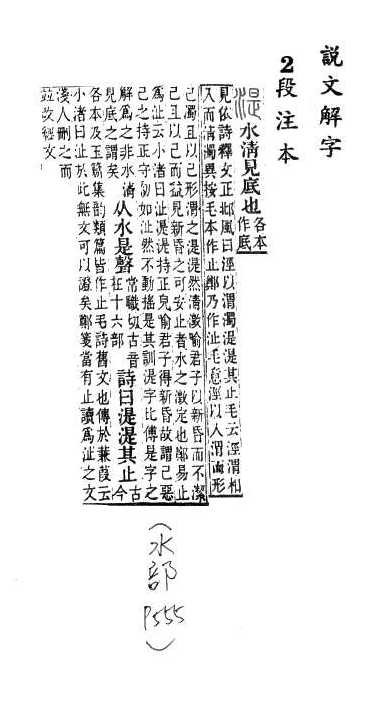 説文解字
2段注本
湜水清見底也各本
作底
見依詩釋文正邶風曰涇以渭濁湜湜其止毛云涇渭相
入而清濁異按毛本作止鄭乃作沚毛意涇以入渭而形
己濁且以己形渭之湜湜然清澂喻君子以新昏而不潔
己且以己而益見新昏之可安止者水之澂定也鄭易止
爲沚云小渚曰沚湜湜持正皃喻君子得新昏故謂己惡
己之持正守初如沚然不動搖是其訓湜字比傅是字之
解爲之非水淸
見底之謂矣
从水是聲
常職切古音
在十六部
詩曰湜湜其止
古
今
各本及玉篇集韵類篇皆作止毛詩舊文也傳於蒹葭云
小渚曰沚於此無文可以證矣鄭箋當有止讀爲沚之文
淺人刪之而
竝改經文
（水部P555）